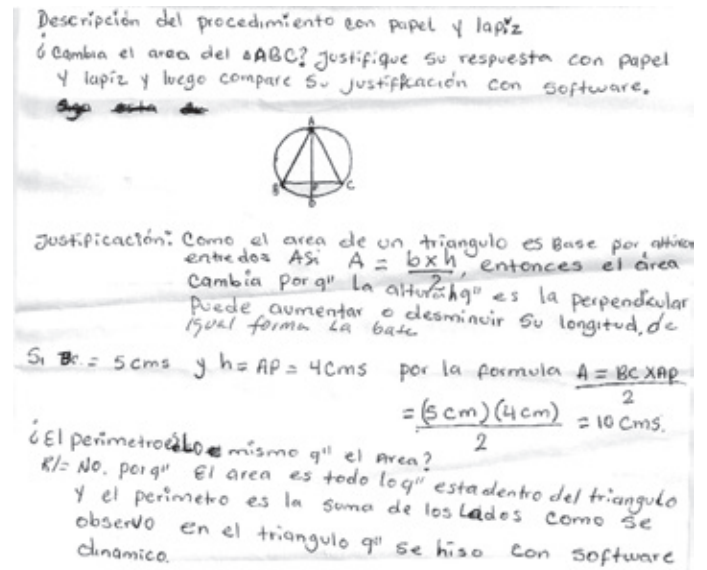 Descripción del procedimiento con papel y lapiz
¿Cambia el area del ▵ABC? Justifique su respuesta con papel
y lapiz y luego compare su justificación con software.
A
B P C
D
Justificación: Como el area de un triangulo es Base por altura
entre dos Asi A = b x h / 2, entonces el área
cambia Por q" La altura h q" es la perpendicular
Puede aumentar o desminuir su longitud, de
igual forma La base
Si Bc = 5 cms y h = AP = 4 cms por la formula A = BC X AP / 2
= (5 cm) (4 cm) / 2 = 10 cms.
¿El perimetro es Lo mismo q" el Area?
R/= No. porq" El area es todo lo q" esta dentro del triangulo
y el perimetro es la suma de los Lados como se
observo en el triangulo q" se hiso con software
dinamico.